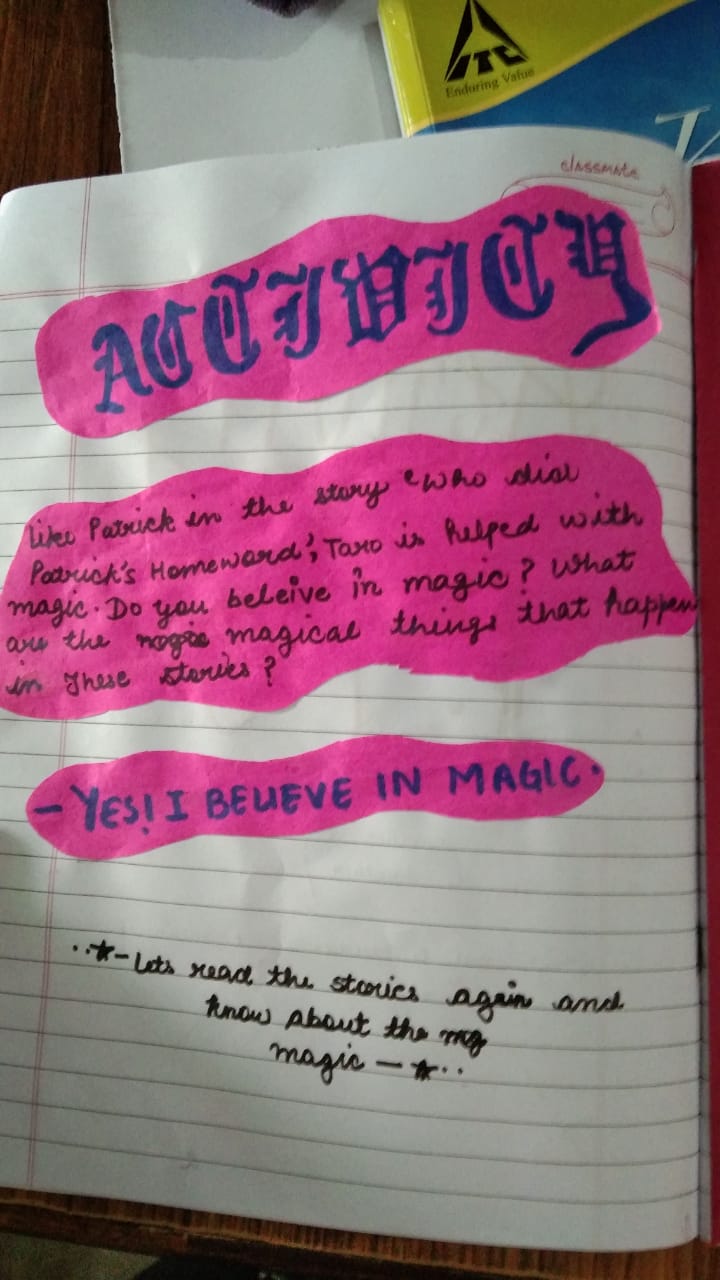 ITC
Enduring Value
classmate
ACTIVITY
Like Patrick in the story 'who dial
Patrick's Homeword', Taro is helped with
magic. Do you beleive in magic? What
are the magical things that happen
in These stories?
- YES! I BELIEVE IN MAGIC.
..★- Lets read the stories again and
know about the mg
magic - ★..